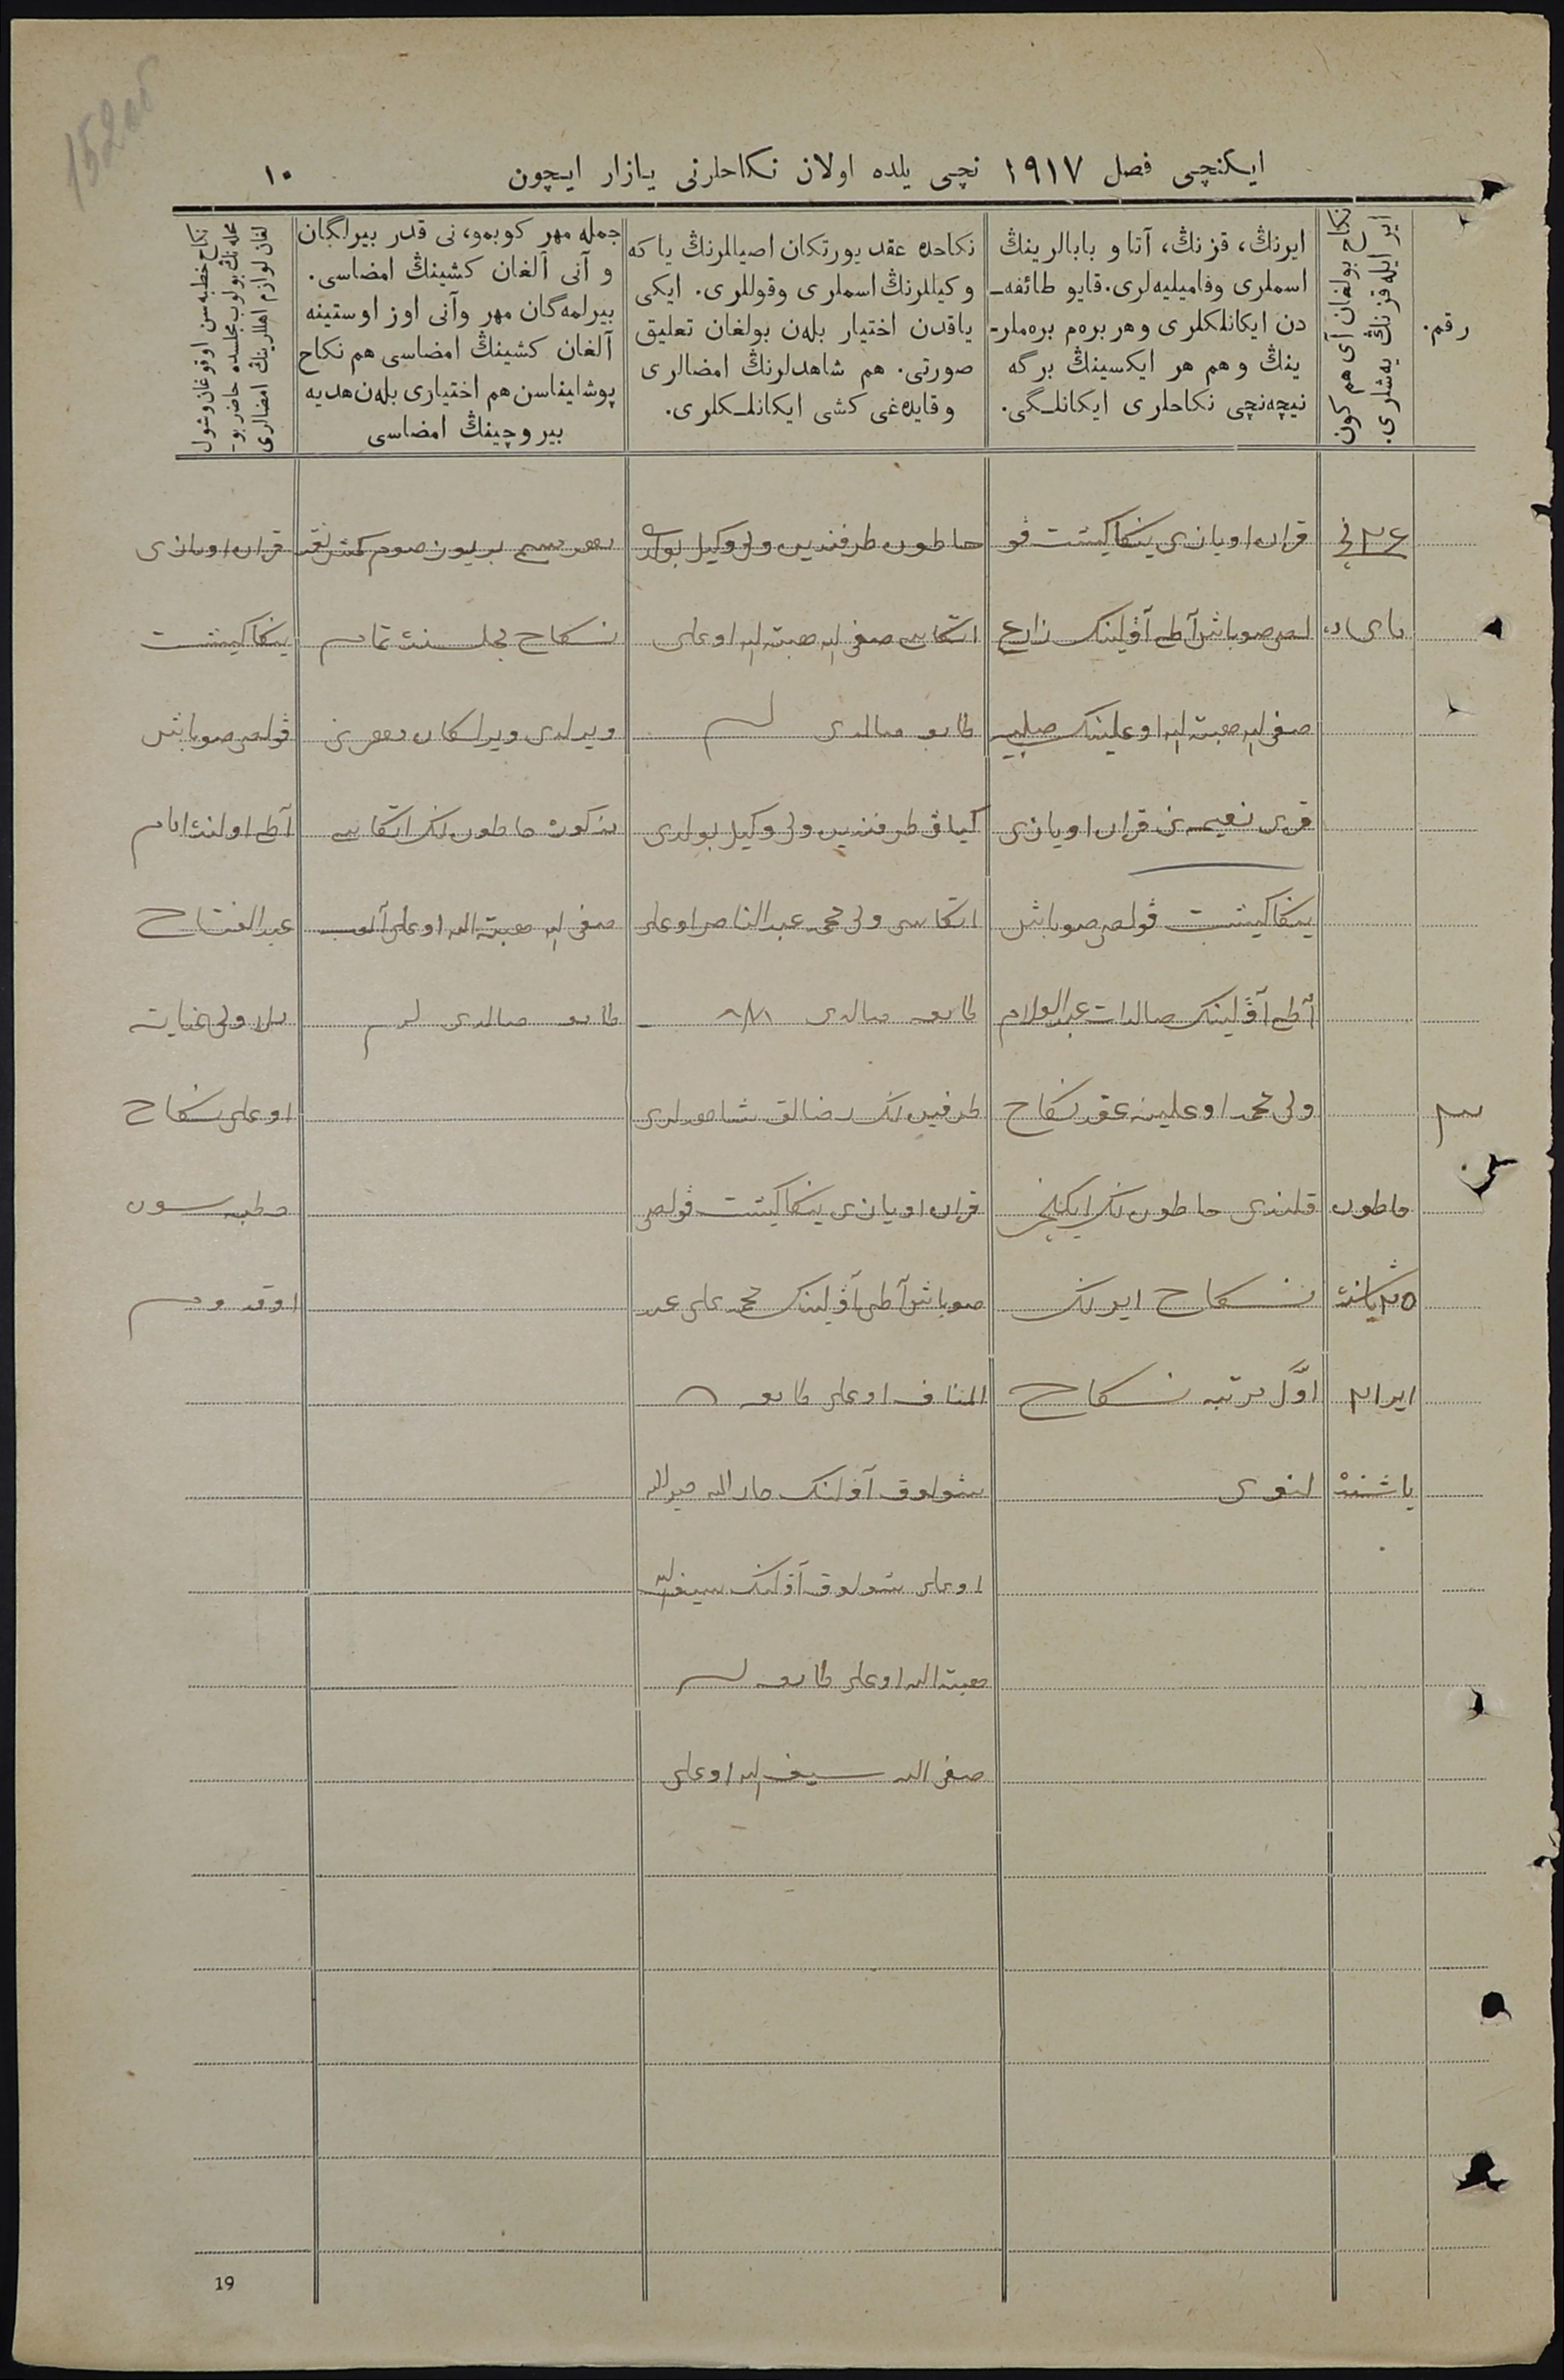 152 об
ایکنچی فصل ۱۹۱۷ نچی یلده اولان نکاحلرنی یازار ایچون
۱۰
رقم.
نکاح بولغان آی هم کون
ایر ایله قزنڭ یەشلری.
ایرنڭ، قزنڭ، آتا و بابالرینڭ
اسملری وفامیلیەلری. قایو طائفە‌ـ
دن ایکانلکلری و هر برەم برەملر‌ـ
ینڭ و هم هر ایکسینڭ برگە
نیچەنچی نکاحلری ایکانلـگی.
نکاحدە عقد یورتکان اصیاللرنڭ یاکە
وکیللرنڭ اسملری وقوللری. ایکی
یاقدن اختیار بلەن بولغان تعلیق
صورتی. هم شاهدلرنڭ امضالری
وقایدەغی کشی ایکانلـکلری.
جملە مهر کوبمو، نی قدر بیرلگان
و آنی آلغان کشینڭ امضاسی.
بیرلمەگان مهر وآنی اوز اوستینە
آلغان کشینڭ امضاسی هم نکاح
پوشلیناسن هم اختیاری بلەن هدیە
بیروچینڭ امضاسی
نکاح خطبەسن اوقوغان وشول
محلەنڭ بولوب مجلسدە حاضر بو‌ـ
لغان لوازم اهللرینڭ امضالری
۳
خاطون
۲۵ یاشندە
ایر ۲۱
یاشندە
قزان اویازی ینکاکیشیت ڤو
لصی صوباش آطی آڤلینک زارع
صفی الله هبة الله اوغلینک صلبیە
قزی نعیمەنی قزان اویازی
ینکاکیشیت ڤولصی صوباش
آطی آڤلینک صالدات عبدالعلام
ولی محمد اوغلینە عقد نکاح
قلندی خاطون نک ایکنچی
نکاح ایرنک
اوّل مرتبە نکاح
لنوی
خاطون طرفندین ولی وکیل بولدی
اتکاسی صفی الله هبة الله اوغلی
طامغە صالدی
کیاو طرفندین ولی وکیل بولدی
اتکاسی ولی محمد عبدالناصر اوغلی
طامغە صالدی
طرفین نک رضالق شاهدلری
قزان اویازی ینکاکیشیت ڤولصی
صوباش آطی آڤلینک محمد علی عبد
المناف اوغلی طامغە
شولوق آڤلنک
اوغلی شولوق آڤلنک سیف الله
هبة الله اوغلی طامغە
صفی الله سیف الله اوغلی
مهر مسمی بر یوز صوم کمش نقد
نکاح مجلسندە تمام
ویرلدی ویرلکان مهرنی
مذکورە خاطون نک اتکاسی
صفی الله هبة الله اوغلی آلوب
طامغە صالدی
قزان اویازی
ینکاکیشیت
ڤولصی صوباش
آطی اولندە امام
عبدالفتاح
ملا ولی عنایت
اوغلی نکاح
خطبەسون
اوقدوم
19